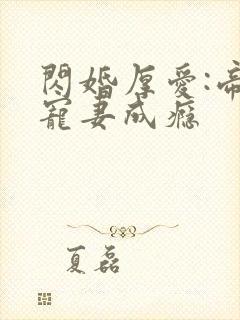 閃婚厚愛:帝
寵妻成癮
夏磊